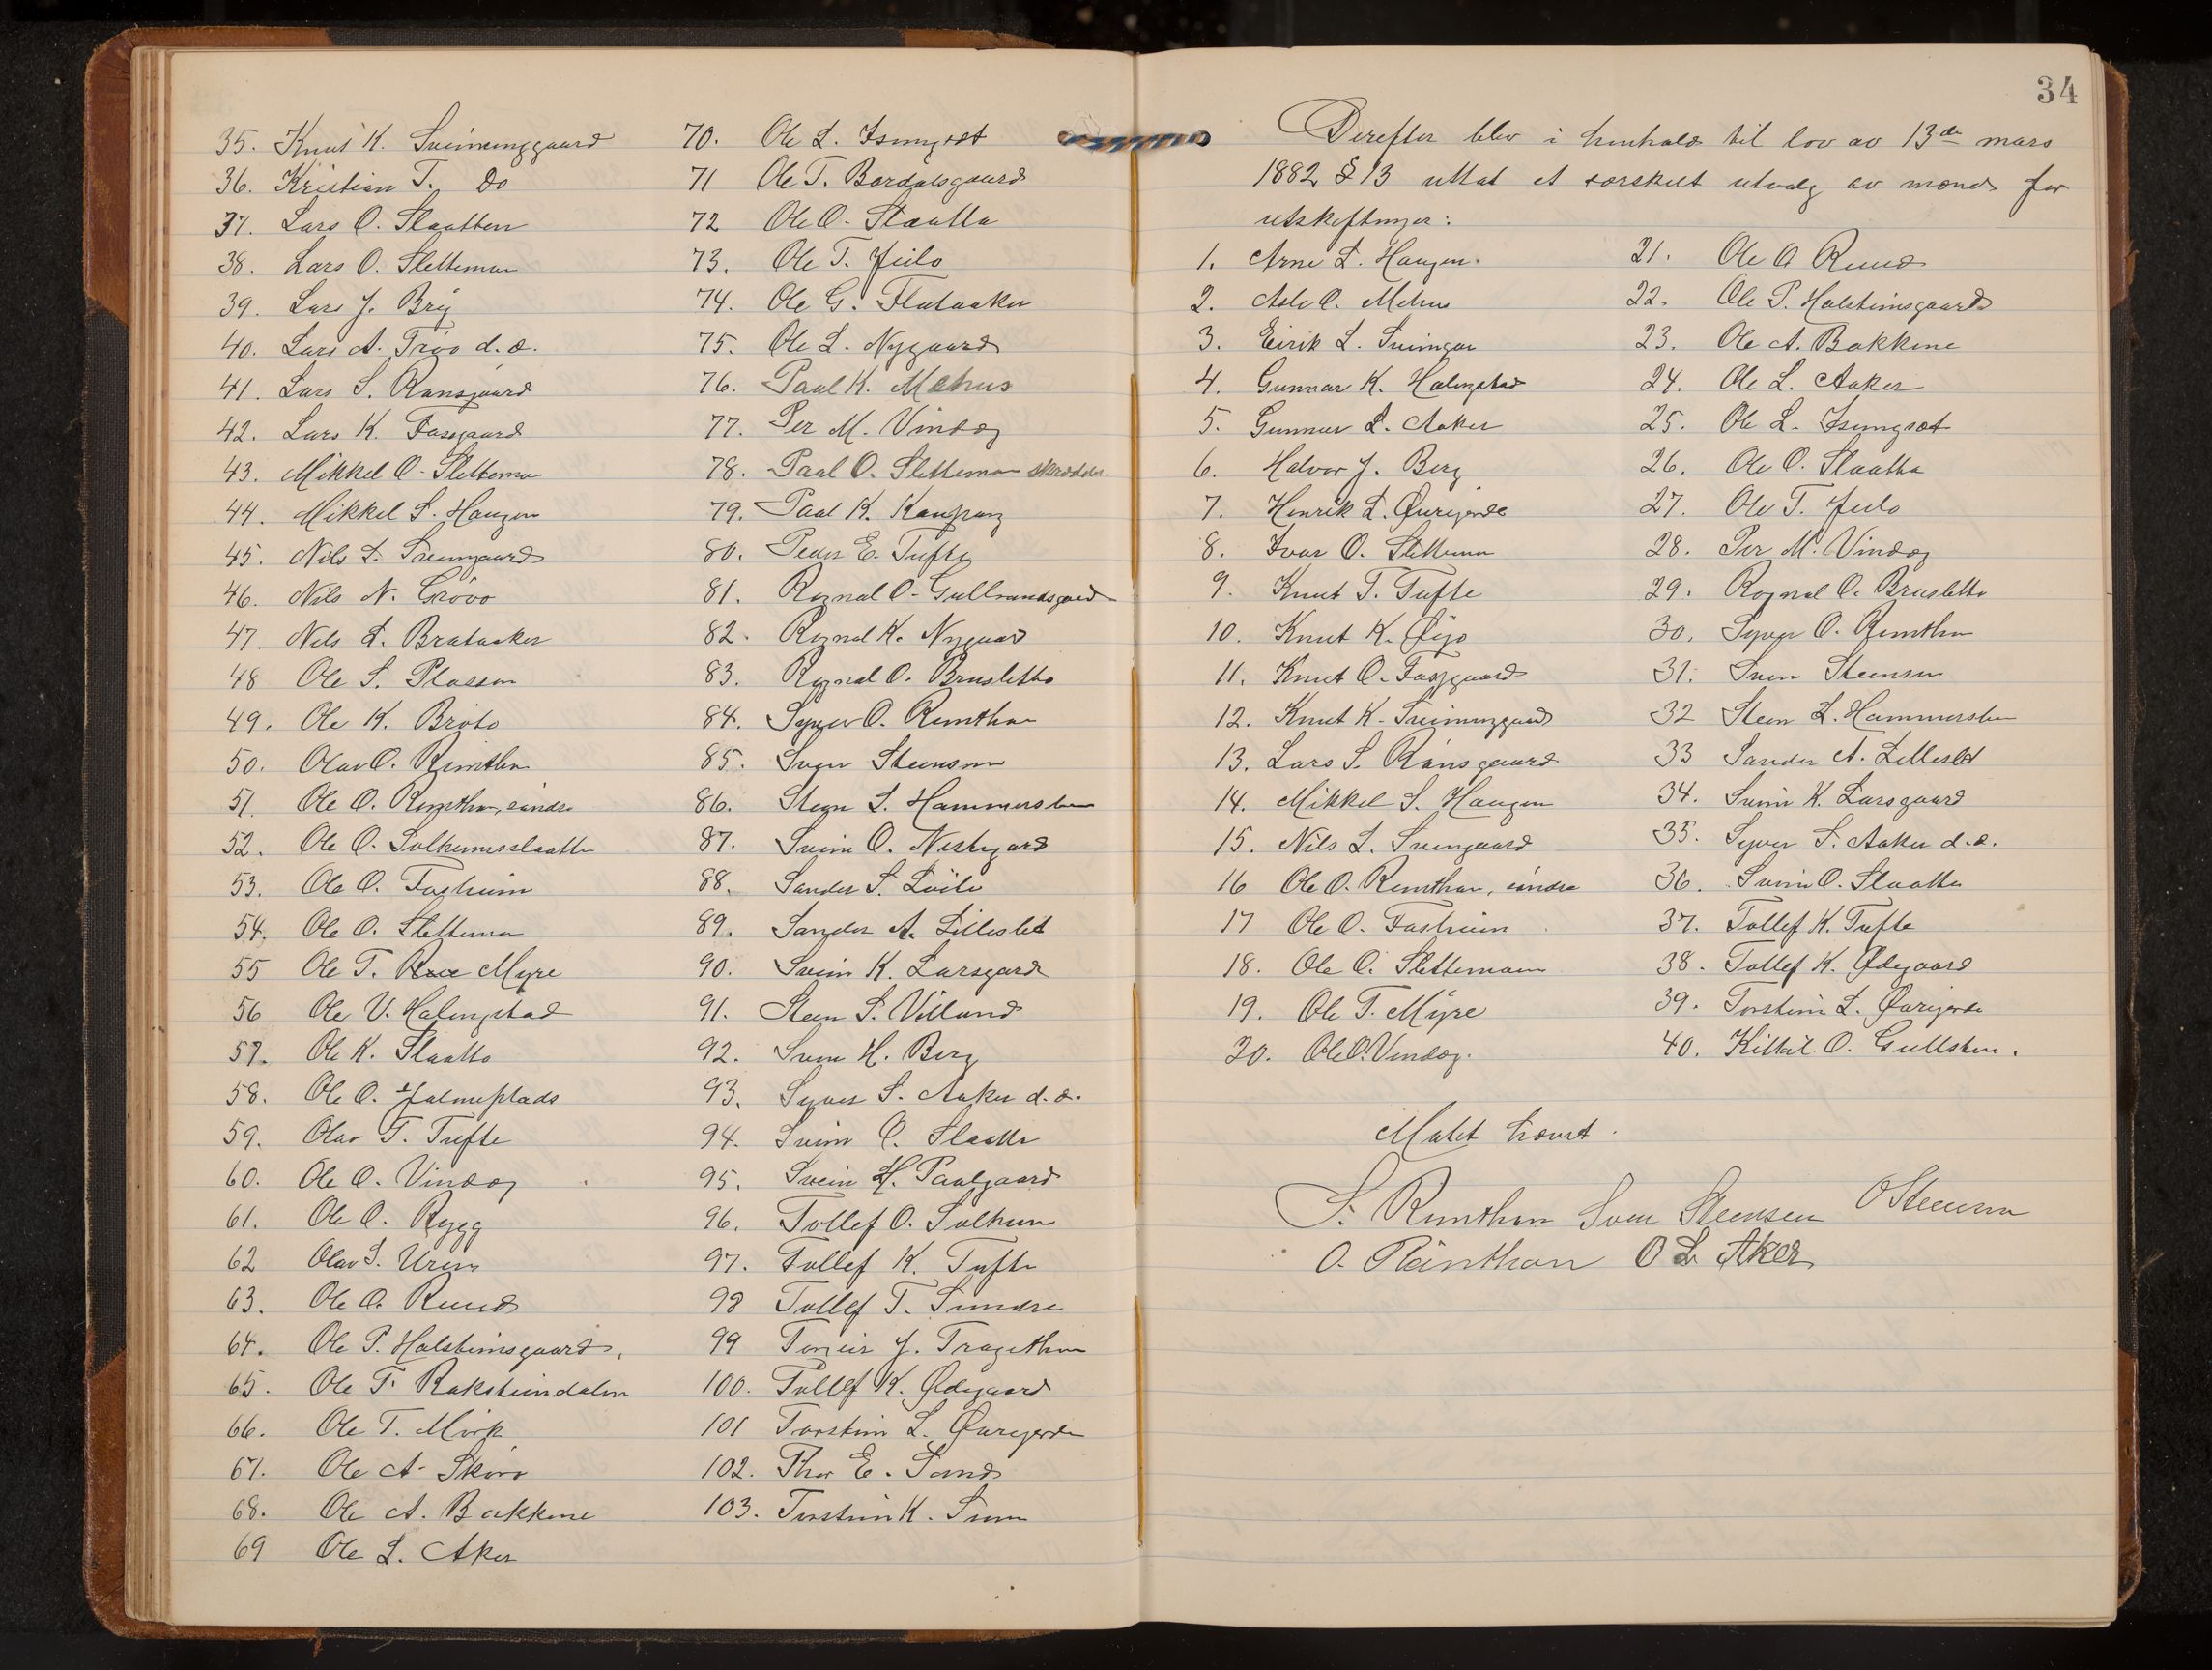 35. Knut K. Sveinunggaard
36. Kristian T. Do
37. Lars O. Slaatten
38. Lars O. Slettemoen
39. Lars J. Berg
40. Lars A. Trøo d. æ.
41. Lars S. Ransgaard
42. Lars K. Fossgaard
43. Mikkel O. Slettemo
44. Mikkel S. Haugen
45. Nils L. Sveingaard
46. Nils N. Grøvo
47. Nils L. Brataaker
48 Ole S. Plassen
49. Ole K. Bröto
50. Olav O. Rimthun
51. Ole O. Rimthun, söndre
52. Ole O. Solheimsslaatten
53. Ole O. Fosheim
54. Ole O. Slettemoen
55 Ole T. Myre
56 Ole V. Halingstad
57. Ole K. Slaatto
58. Ole O. Holmeplads
59. Olav T. Tufte
60. Ole O. Vindeg
61. Ole O. Rygg
62 Olav S. Uren
63. Ole O. Ruud
64. Ole P. Halsteinsgaard.
65. Ole T. Raksteindalen
66. Ole T. Mörk
67. Ole A. Skövo
68. Ole A. Bakkene
69 Ole L. Aker
70. Ole L. Isungset
71 Ole T. Bardalsgaard
72 Ole O. Slaatta
73. Ole T. Jeilo
74. Ole G. Flataaker
75. Ole L. Nygaard
76. Paal K. Mehus
77. Per M. Vindeg
78. Paal O. Slettemoen skrædder.
79. Paal K. Kaupang
80. Peder E. Tufte
81. Rognal O. Gulbrandsgard
82. Rognal K. Nygaard
83. Rognal O. Brusletto
84. Syver O. Rimthun
85. Sven Steensen
86. Stein L. Hammersbøen
87. Svein O. Nestegard
88. Sander S. Löilo
89. Sander A. Lilleslet
90. Svein K. Larsgard
91. Steen S. Villand
92. Svein H. Berg
93. Syver S. Aaker d. æ.
94. Svein O. Slaatto
95. Svein H. Paalgaard
96. Tollef O. Solheim
97. Tollef K. Tufte
98 Tollef T. Sundre
99 Torgeir J. Tragethon
100. Tollef K. Ødegaard
101 Torstein L. Øvregjerde
102. Thor E. Sand
103. Torstein K. Svein
34
Derefter blev i henhold til lov av 13de mars
1882 § 13 uttat et særskilt utvalg av mænd for
utskiftninger:
1. Arne L. Haugen.
2. Asle O. Mehus
3. Eirik L. Sveingar
4. Gunnar K. Halingstad
5. Gunnar L. Aaker
6. Halvor J. Berg
7. Henrik L. Øvregjerde
8. Ivar O. Slettemoen
9. Knut T. Tufte
10. Knut K. Öyo
11. Knut O. Fossgaard
12. Knut K. Sveinunggaard
13. Lars S. Ransgaard
14. Mikkel S. Haugen
15. Nils L. Sveingaard
16 Ole O. Rimthun, söndre
17 Ole O. Fosheim
18. Ole O. Slettemoen
19. Ole T. Myre
20. Ole O. Vindeg.
21. Ole O Ruud
22. Ole P. Halsteinsgaard
23. Ole A. Bakkene
24. Ole L. Aaker
25. Ole L. Isungset
26. Ole O. Slaatta
27. Ole T. Jeilo
28. Per M. Vindeg
29. Rognal O. Brusletto
30. Syver O. Rimthun
31. Sven Steensen
32 Steen L. Hammersbøen
33 Sander A. Lilleslet
34. Svein K. Larsgaard
35. Syver S. Aaker d. æ.
36. Svein O. Slaatto
37. Tollef K. Tufte
38. Tollef K. Ødegaard
39. Torstein L. Øvregjerde
40. Kittil O. Gullsten.
Møtet hævet.
S. Rimthun Sven Steensen O Steensen
O. Reinthon O L Aker